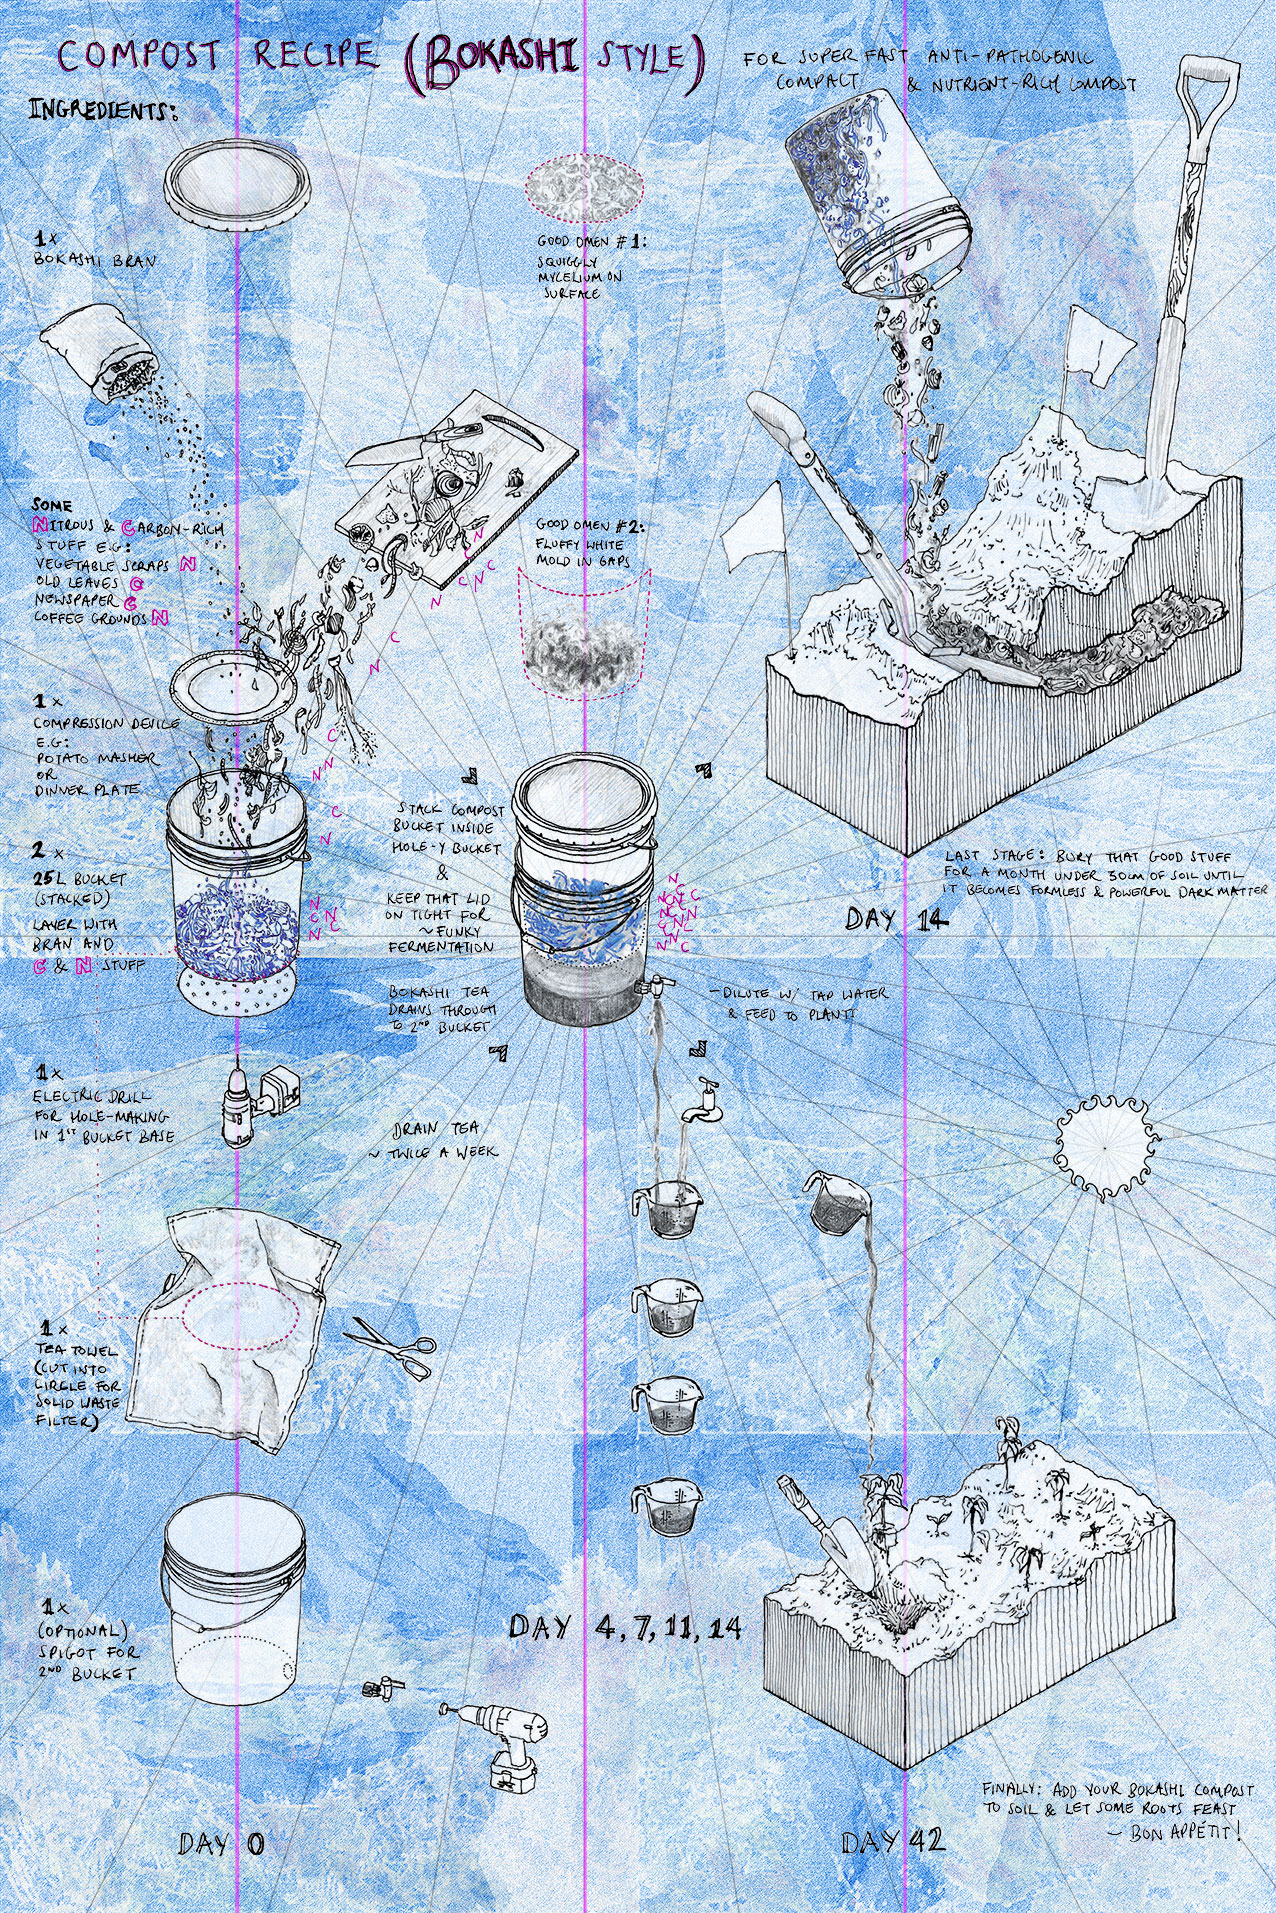 COMPOST RECIPE (BOKASHI STYLE)
FOR SUPER FAST ANTI-PATHOGENIC
COMPACT & NUTRIENT-RICH COMPOST
INGREDIENTS:
1x
BOKASHI BRAN
SOME
NITROUS & CARBON-RICH
STUFF E.G:
VEGETABLE SCRAPS N
OLD LEAVES C
NEWSPAPER C
COFFEE GROUNDS N
1 x
COMPRESSION DEVICE
E.G:
POTATO MASHER
OR
DINNER PLATE
2 x
25L BUCKET
(STACKED)
LAYER WITH
BRAN AND
C & N STUFF
1x
ELECTRIC DRILL
FOR HOLE-MAKING
IN 1ST BUCKET BASE
1x
TEA TOWEL
(CUT INTO
CIRCLE FOR
SOLID WASTE
FILTER)
1x
(OPTIONAL)
SPIGOT FOR
2ND BUCKET
DAY 0
N
N
C
N
C
N
C
N
C
N
N
C
N
N
C
N
C
N
GOOD OMEN #1:
SQUIGGLY
MYCELIUM ON
SURFACE
GOOD OMEN #2:
FLUFFY WHITE
MOLD IN GAPS
STACK COMPOST
BUCKET INSIDE
HOLE-Y BUCKET
&
KEEP THAT LID
ON TIGHT FOR
~ FUNKY
FERMENTATION
BOKASHI TEA
DRAINS THROUGH
TO 2ND BUCKET
- DILUTE W/ TAP WATER
& FEED TO PLANT!
DRAIN TEA
~ TWICE A WEEK
DAY 4, 7, 11, 14
LAST STAGE: BURY THAT GOOD STUFF
FOR A MONTH UNDER 30CM OF SOIL UNTIL
IT BECOMES FORMLESS & POWERFUL DARK MATTER
DAY 14
FINALLY: ADD YOUR BOKASHI COMPOST
TO SOIL & LET SOME ROOTS FEAST
~ BON APPÉTIT!
DAY 42